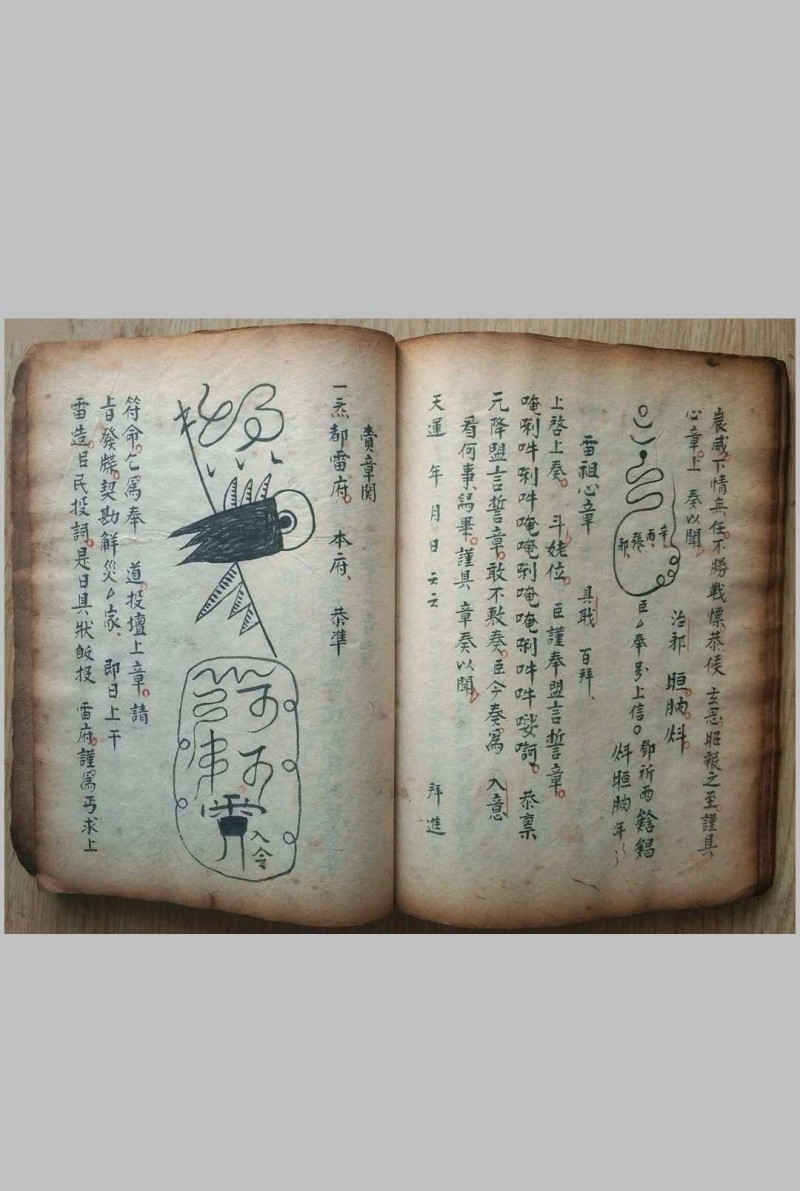 威下情無任不勝戰慄恭侯 之至謹具
心章上 奏以聞
治邪
辛
丙
張
邪
臣厶奉 上信
鄧
雷祖心章 具職 百拜
上啓上奏 斗姥位 臣謹奉盟言誓章
唵唎吽唎吽唵唵唎唵唵唎吽吽 恭禀
元降盟言誓章敢不敷奏臣今奏爲 入意
看何事寫畢謹具 章奏以聞
天運 年 月 日 云云 拜進
賫章関
一炁都雷府 本府 恭準
入令
符命乞爲奉 道投壇上章請
旨發牒契勘解災厶家 即日上干
雷造臣民投詞是日具狀皈投 雷府謹爲丐求上